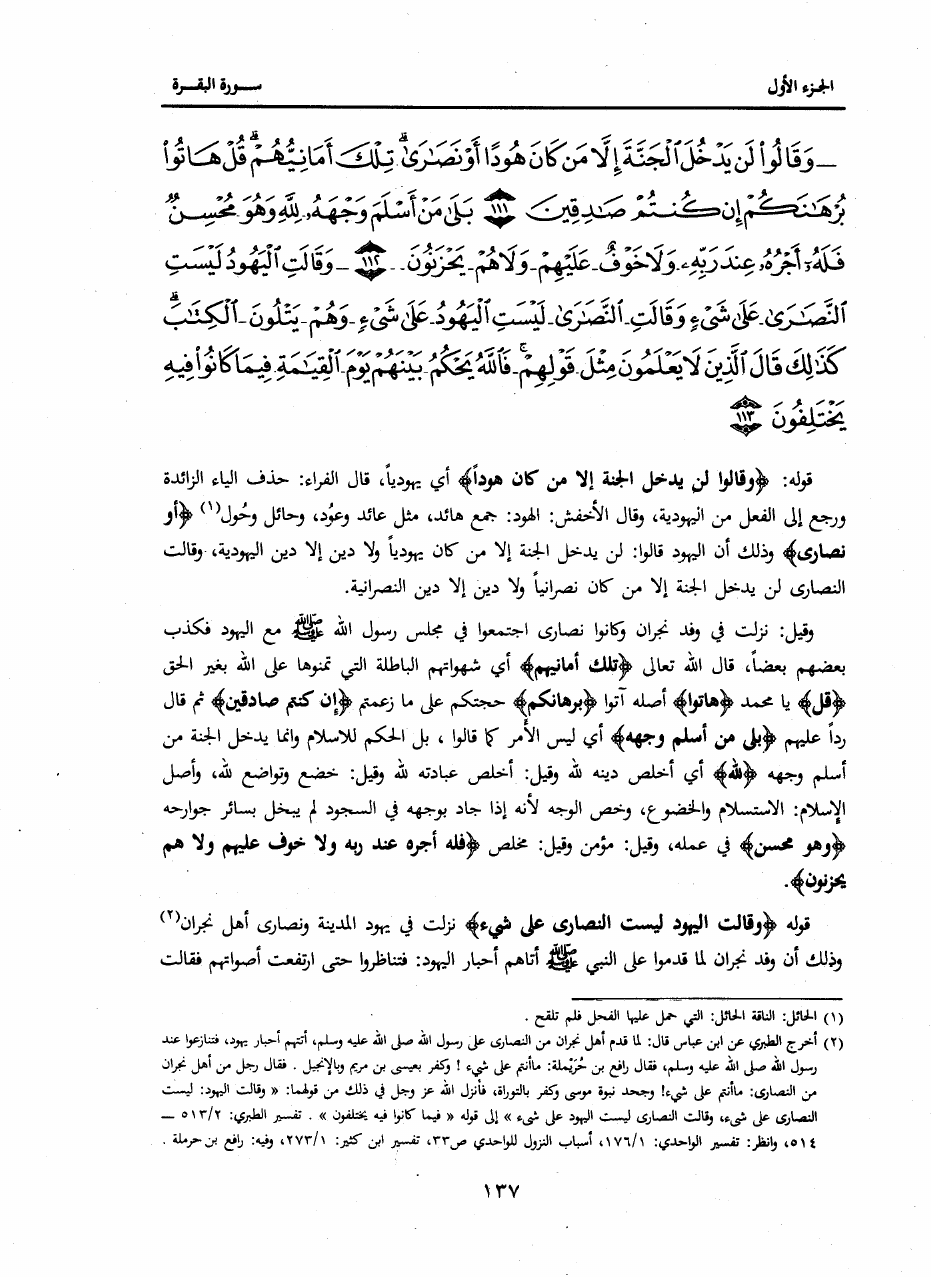 الجزء الأول
ســورة البقــرة
ــ وَقَالُوا۟ لَن يَدْخُلَ ٱلْجَنَّةَ إِلَّا مَن كَانَ هُودًا أَوْ نَصَـٰرَىٰ ۗ تِلْكَ أَمَانِيُّهُمْ ۗ قُلْ هَاتُوا۟
بُرْهَـٰنَكُمْ إِن كُنتُمْ صَـٰدِقِينَ ١١١ بَلَىٰ مَنْ أَسْلَمَ وَجْهَهُۥ لِلَّهِ وَهُوَ مُحْسِنٌ
فَلَهُۥٓ أَجْرُهُۥ عِندَ رَبِّهِۦ وَلَا خَوْفٌ عَلَيْهِمْ وَلَا هُمْ يَحْزَنُونَ ١١٢ ــ وَقَالَتِ ٱلْيَهُودُ لَيْسَتِ
ٱلنَّصَـٰرَىٰ عَلَىٰ شَىْءٍ وَقَالَتِ ٱلنَّصَـٰرَىٰ لَيْسَتِ ٱلْيَهُودُ عَلَىٰ شَىْءٍ وَهُمْ يَتْلُونَ ٱلْكِتَـٰبَ ۗ
كَذَٰلِكَ قَالَ ٱلَّذِينَ لَا يَعْلَمُونَ مِثْلَ قَوْلِهِمْ ۚ فَٱللَّهُ يَحْكُمُ بَيْنَهُمْ يَوْمَ ٱلْقِيَـٰمَةِ فِيمَا كَانُوا۟ فِيهِ
يَخْتَلِفُونَ ١١٣
قوله: ﴿وقالوا لن يدخل الجنة إلا من كان هوداً﴾ أي يهودياً، قال الفراء: حذف الياء الزائدة
ورجع إلى الفعل من اليهودية، وقال الأخفش: الهود: جمع هائد، مثل عائد وعوُد، وحائل وحُول(١) ﴿أو
نصارى﴾ وذلك أن اليهود قالوا: لن يدخل الجنة إلا من كان يهودياً ولا دين إلا دين اليهودية، وقالت
النصارى لن يدخل الجنة إلا من كان نصرانياً ولا دين إلا دين النصرانية.
وقيل: نزلت في وفد نجران وكانوا نصارى اجتمعوا في مجلس رسول الله ﷺ مع اليهود فكذب
بعضهم بعضاً، قال الله تعالى ﴿تلك أمانيهم﴾ أي شهواتهم الباطلة التي تمنوها على الله بغير الحق
﴿قل﴾ يا محمد ﴿هاتوا﴾ أصله آتوا ﴿برهانكم﴾ حجتكم على ما زعمتم ﴿إن كنتم صادقين﴾ ثم قال
رداً عليهم ﴿بلى من أسلم وجهه﴾ أي ليس الأمر كما قالوا ، بل الحكم للاسلام وانما يدخل الجنة من
أسلم وجهه ﴿لله﴾ أي أخلص دينه لله وقيل: أخلص عبادته لله وقيل: خضع وتواضع لله، وأصل
الإسلام: الاستسلام والخضوع، وخص الوجه لأنه إذا جاد بوجهه في السجود لم يبخل بسائر جوارحه
﴿وهو محسن﴾ في عمله، وقيل: مؤمن وقيل: مخلص ﴿فله أجره عند ربه ولا خوف عليهم ولا هم
يحزنون﴾.
قوله ﴿وقالت اليهود ليست النصارى على شيء﴾ نزلت في يهود المدينة ونصارى أهل نجران(٢)
وذلك أن وفد نجران لما قدموا على النبي ﷺ أتاهم أحبار اليهود: فتناظروا حتى ارتفعت أصواتهم فقالت
(١) الحائل: الناقة الحائل: التي حمل عليها الفحل فلم تلقح .
(٢) أخرج الطبري عن ابن عباس قال: لما قدم أهل نجران من النصارى على رسول الله صلى الله عليه وسلم، أتتهم أحبار يهود، فتنازعوا عند
رسول الله صلى الله عليه وسلم، فقال رافع بن حُرَيْملة: ماأنتم على شيء ! وكفر بعيسى بن مريم وبالإنجيل . فقال رجل من أهل نجران
من النصارى: ماأنتم على شيء! وجحد نبوة موسى وكفر بالتوراة، فأنزل الله عز وجل في ذلك من قولهما: « وقالت اليهود: ليست
النصارى على شيء، وقالت النصارى ليست اليهود على شيء » إلى قوله « فيما كانوا فيه يختلفون » . تفسير الطبري: ٥١٣/٢ ــ
٥١٤، وانظر: تفسير الواحدي: ١٧٦/١، أسباب النزول للواحدي ص٣٣، تفسير ابن كثير: ٢٧٣/١، وفيه: رافع بن حرملة .
١٣٧